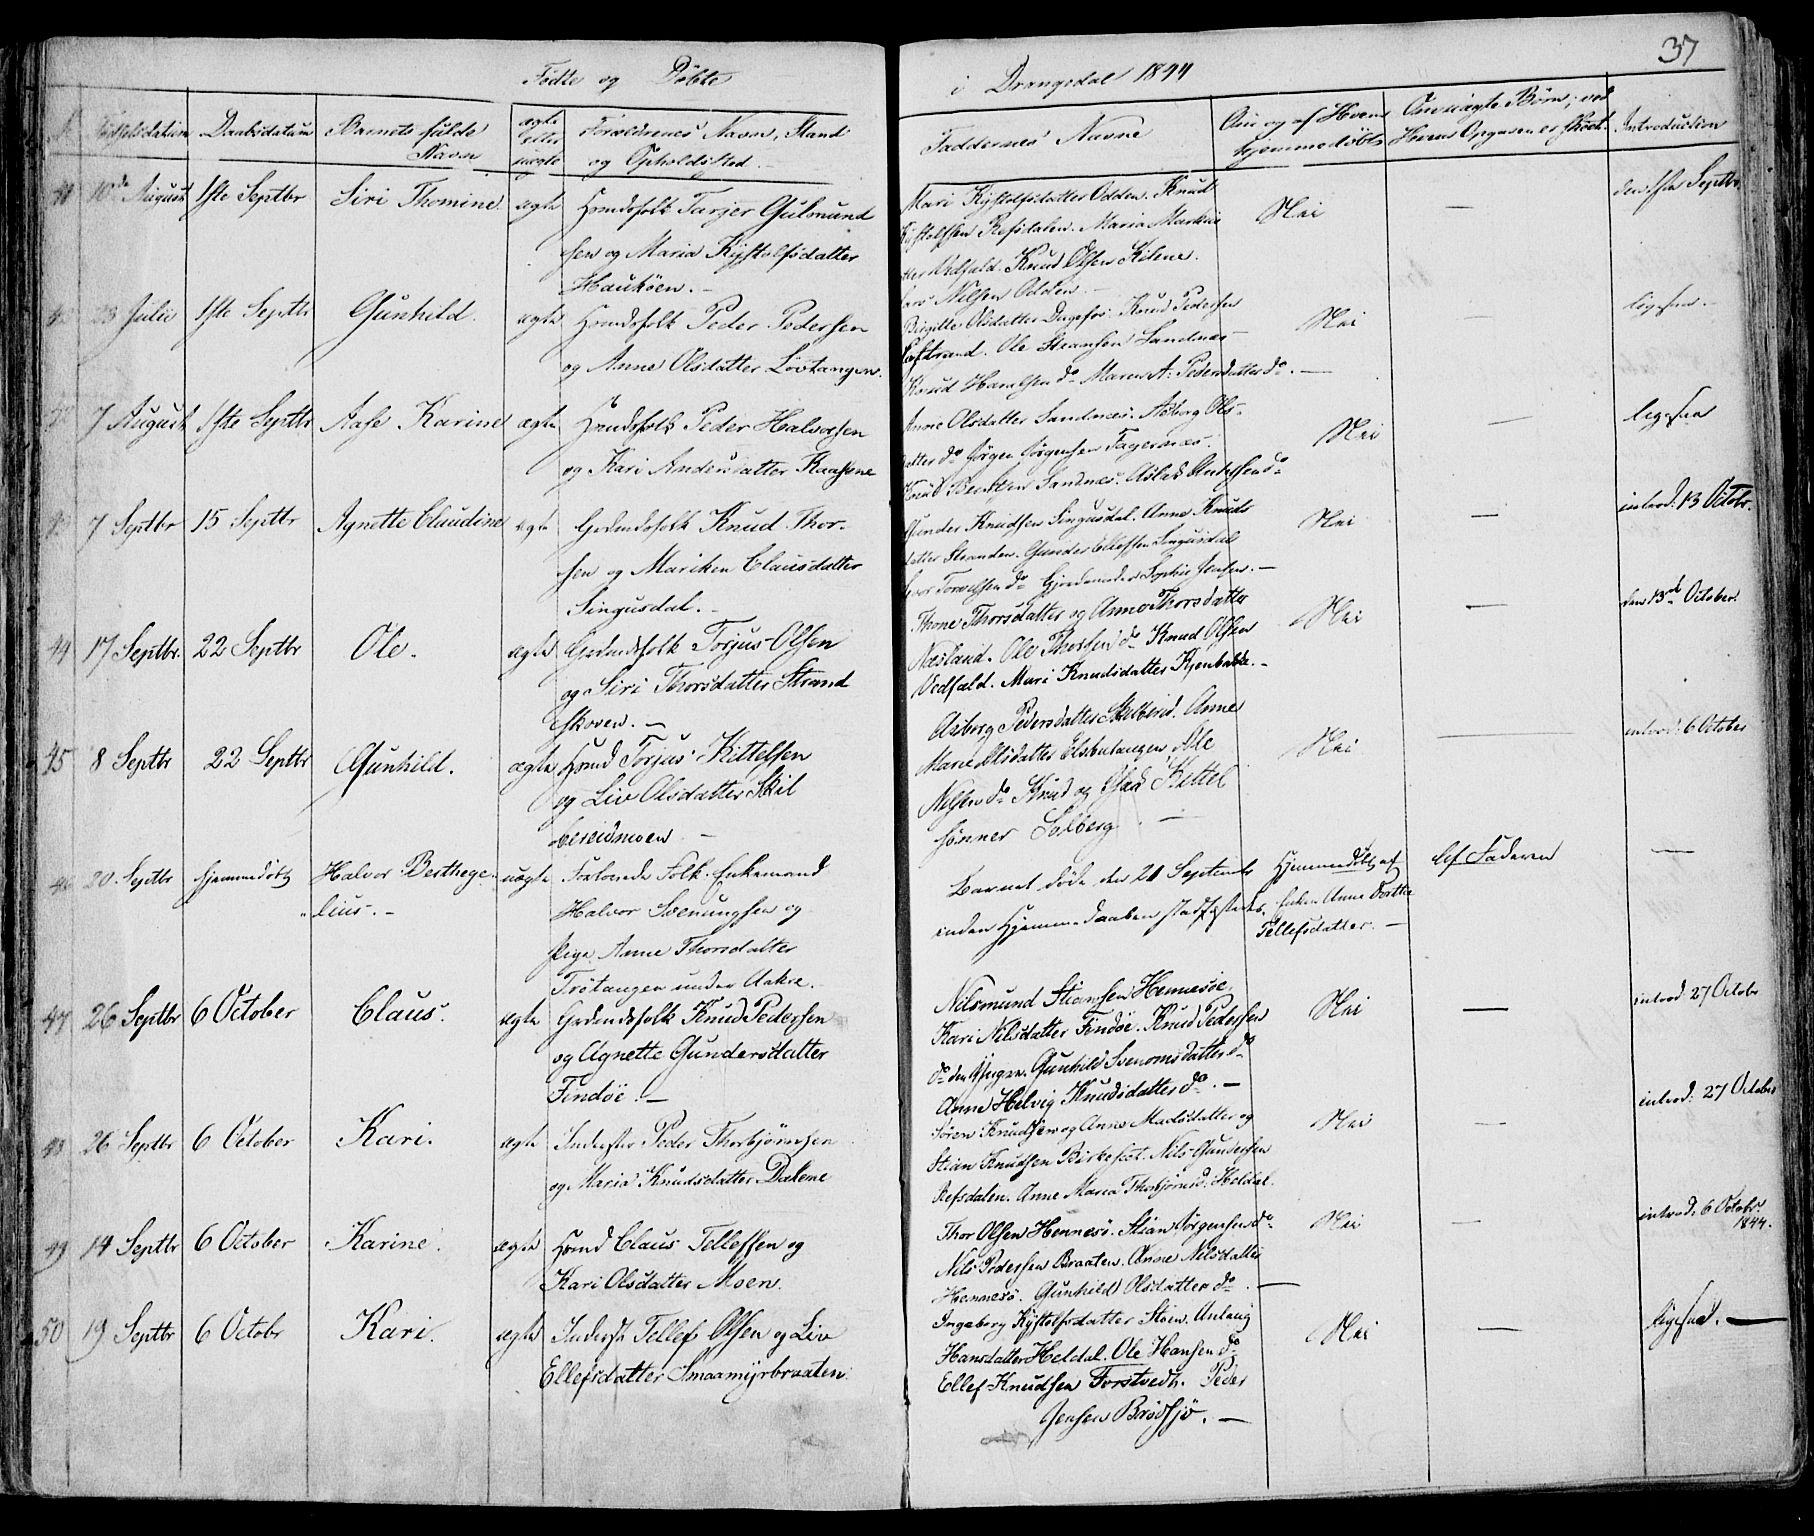 37
Födte og Döbte i Drangedal 1844
Födselsdatum Daabsdatum Barnets fulde Navn ægte eller uægte Forældrenes Navn, Stand og Opholdssted. Faddernes Navne Om og af Hvem hjemmedöbt Om uægte Börn; ved Hvem Opgaven er skeet. Introduction
41 10de August 1ste Septbr Siri Thomine ægte Huusfolk Tarjer Gulmund
sen og Maria Kjÿstolfsdatter
Hauköen. –
Mari Kjÿstolfsdatter Odden. Knud
Kjÿstolfsen Refsdalen. Maria Markus
datter Vedfald. Knud Olsen Kilene.
Lars Nilsen Odden. –
Nei — den 1ste Septbr
42 23 Julii 1ste Septbr Gunhild. ægte Huusfolk Peder Pedersen
og Anne Olsdatter Lövtangen.
Birgitte Olsdatter Dagsfos. Knud Pedersen
Ole Steansen Sandnæs
Knud do Maren A. Pedersdatter do. —
Nei — ligesaa –
7 August 1ste Septbr Aase Karine ægte Huusfolk Peder Halvorsen
og Kari Andersdatter Kaasene
Anne Olsdatter Sandnæs. Asborg Ols-
datter do Jörgen Jörgensen Fagernæs.
Knud Bentsen Sandnæs. Aslak do
Nei — ligesaa
7 Septbr 15 Septbr Agnette Claudine ægte Grdmdsfolk Knud Thor-
sen og Mariken Clausdatter
Singusdal. –
Gunder Knudsen Singusdal. Anne Knuds
datter Stranden. Gunder Ellefsen Singusdal
do Gjordemoder Sophie Jensen. –
Nei — introd. 13 Octbr.
44 17 Septbr. 22 Septbr Ole. ægte Grdmdsfolk Torjus Olsen
og Siri Thorsdatter Strand
skoven. –
Thone Thorsdatter og Anne Thorsdatter
Næsland. Ole Thorsen do Knud Olsen
Vedfald. Mari Knudsdatter Kjenbakke. –
Nei — den 13de October.
45 8 Septbr 22 Septbr Gunhild. ægte Hsmd Torjus Kittelsen
og Liv Olsdatter Skil
bereidmoen. –
Asborg Pedersdatter Skilbred. Anne
Marie Olsdatter Elsbutangen. Ole
Nilsen do Knud og Isak Kittel
sönner Solberg. –
Nei — introd. 6 October
46 20 Septbr hjemmedöbt Halvor Berthege-
lius. – uægte Forlovede Folk. Enkemand
Halvor Svenungsen og
Pige Anne Thorsdatter
Trötangen under Aakre.
Barnet döde den 21 Septembr
inden Hjemmedaaben stadfæstedes.
Hjemmedöbt af
Enken Anne Dorthea
Tellefsdatter. –
af Faderen —
47 26 Septbr 6 October Claus. ægte Grdmdsfolk Knud Pedersen
og Agnette Gundersdatter
Findöe. –
Nilsmund Stiansen Hennesöe.
Kari Nilsdatter Findöe. Knud Pedersen
do den Yngre. Gunhild Svenomsdatter do
Anne Helvig Knudsdatter do. –
Nei — introd. 27 Octobr
48 26 Septbr 6 October Kari. ægte Inderster Peder Thorbjörnsen
og Maria Knudsdatter Dalene
Sören Knudsen og Anne Madsdatter og
Stian Knudsen Birkeset. Nils Gundersen
Refsdalen. Anne Maria Thorbjörnsd. Heldal.
Nei — introd. 27 October
49 14 Septbr 6 October Karine. ægte Hsmd Claus Tellefsen og
Kari Olsdatter Moen.
Thor Olsen Hennesö. Stian Jörgensen do.
Nils Pedersen Braaten. Anne Nilsdatter
Hennesö. Gunhild Olsdatter do. —
Nei — introd. 6 Octobr.
1844.
50 19 Septbr 6 Octobr Kari. ægte Inderst Tellef Olsen og Liv
Ellefsdatter Smaamÿrbraaten.
Ingeborg Kjÿstolfsdatter Stöen. Anlaug
Hansdatter Heldal. Ole Hansen do
Ellef Knudsen Forstvedt. Peder
Jensen Brödsjö. –
Nei — ligesaa. —